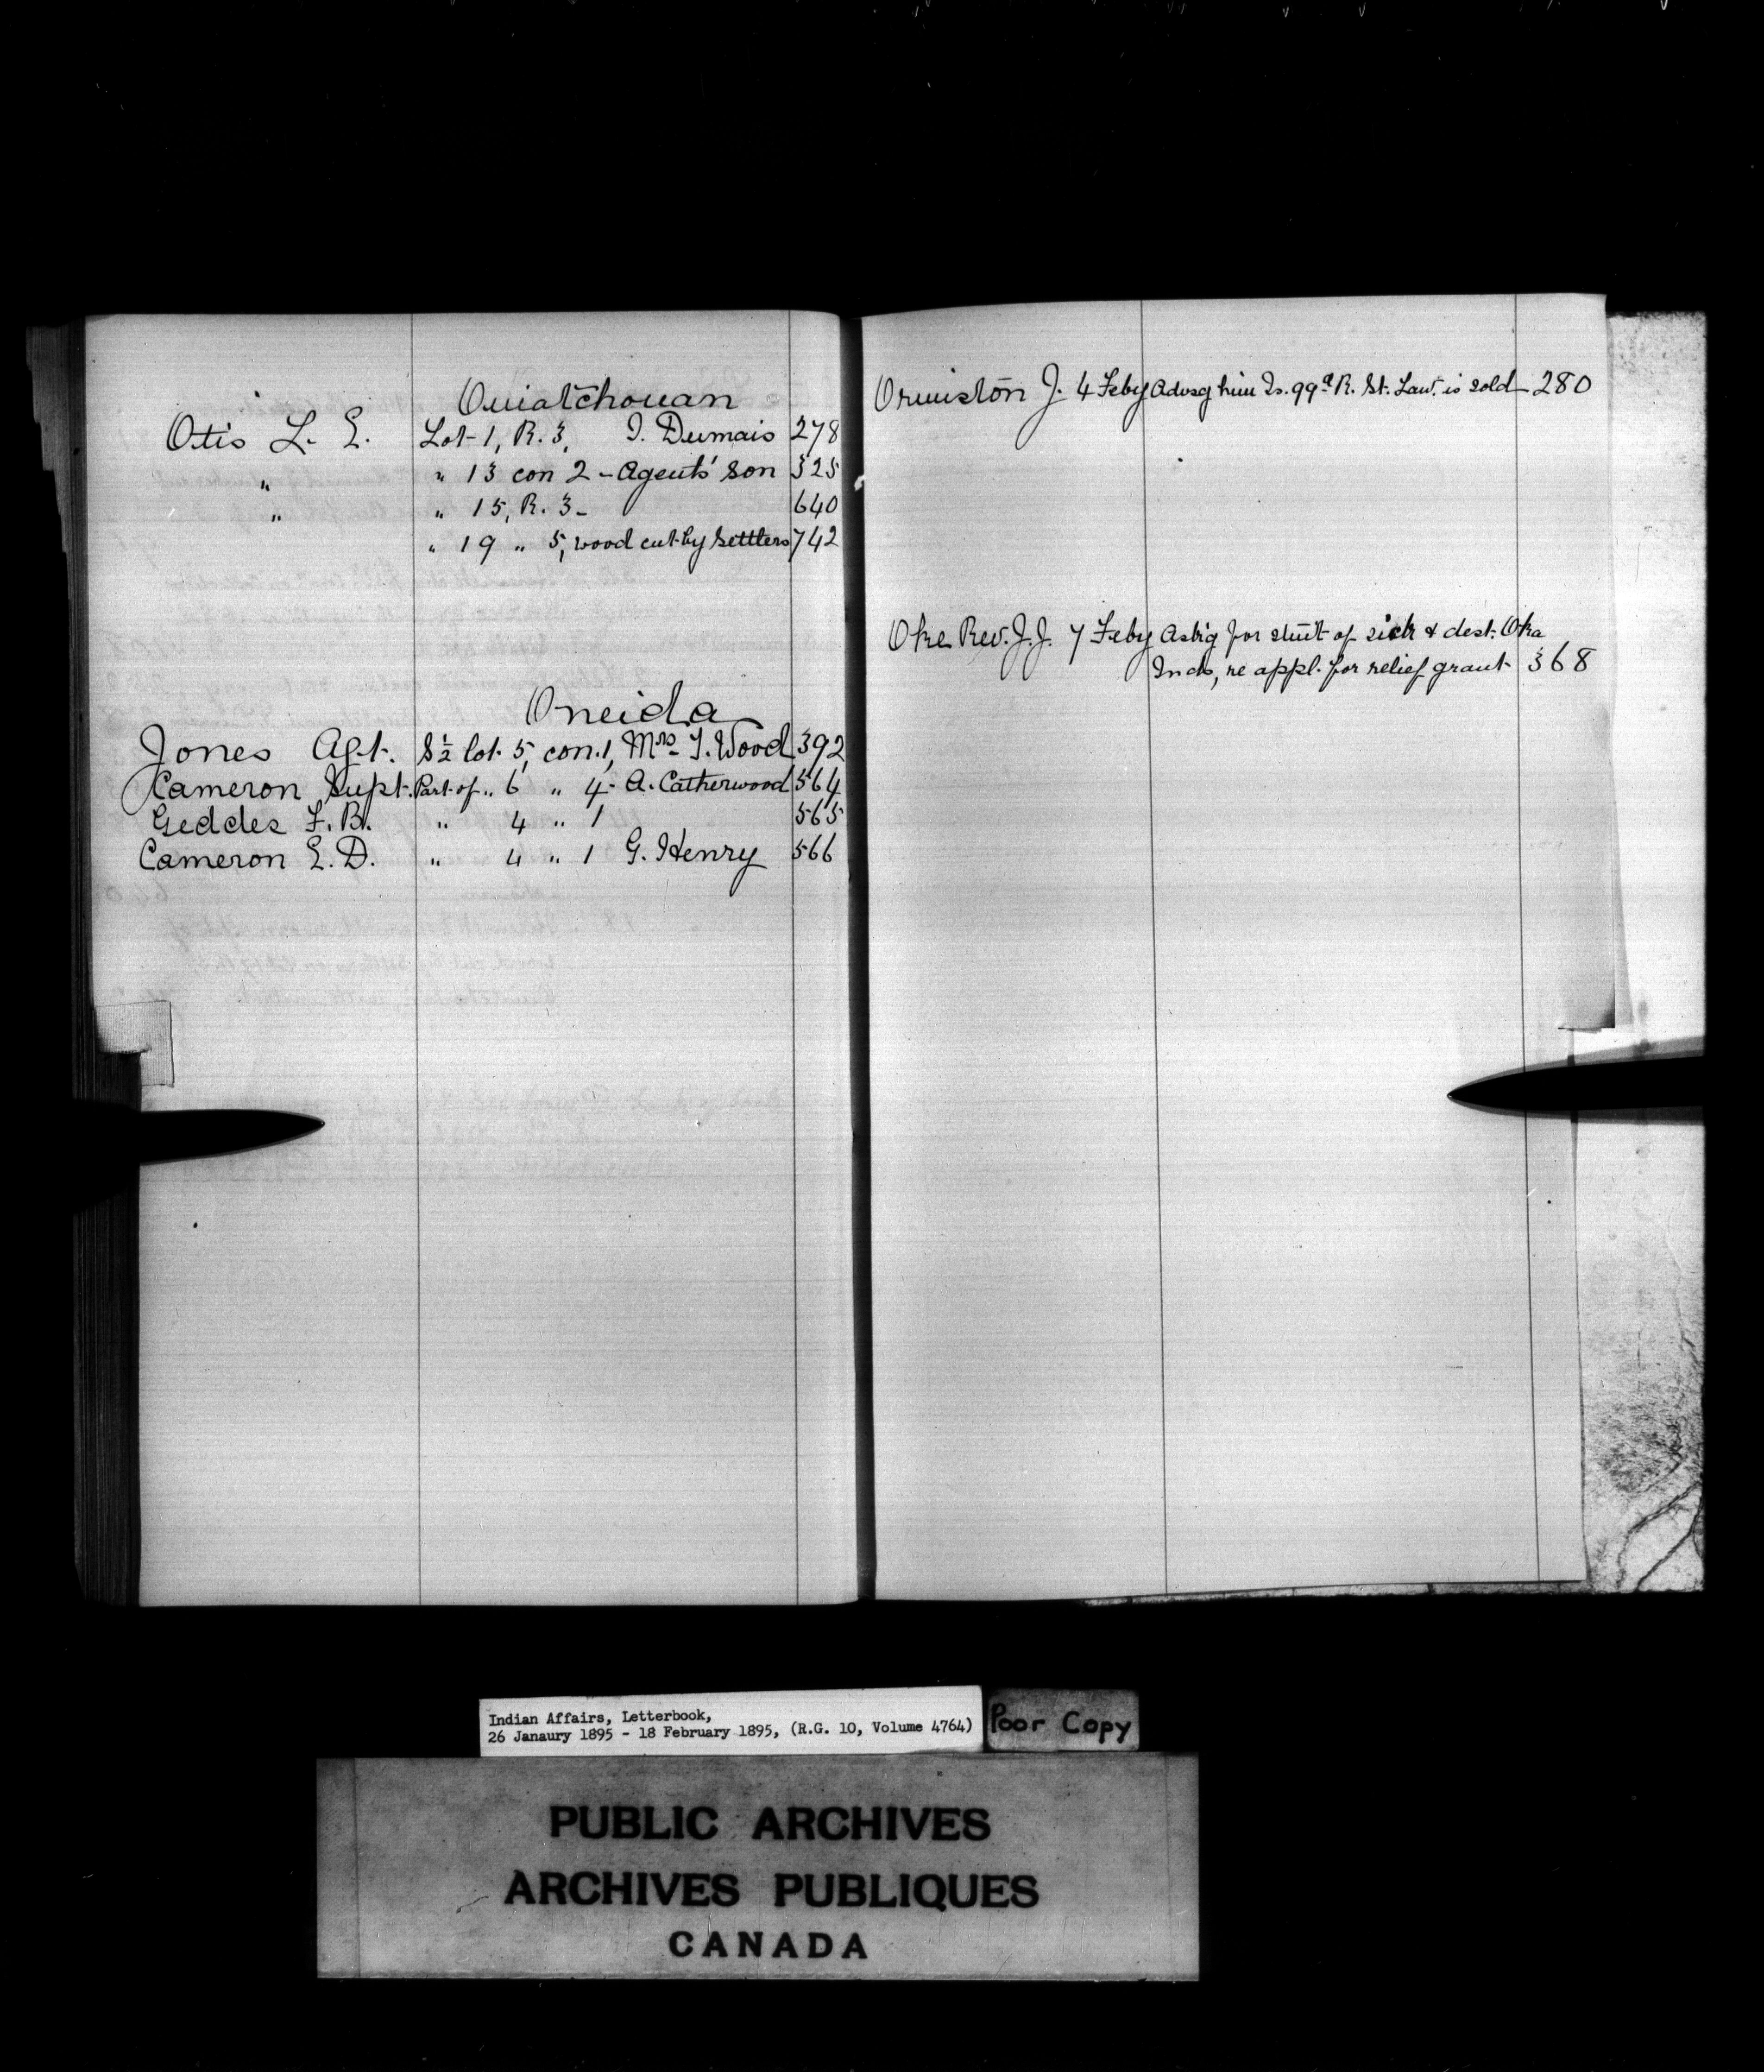 Ouiatchouan
Otis L. E. Lot 1, R. 3, I. Dumais 278
" " 13 con 2 - Agents' son 325
" " 15, R. 3 - 640
" 19 " 5, wood cut by Settlers 742
Oneida
Jones Agt. S½ lot 5, con. 1, Mrs. T. Wood 392
Cameron Supt. Part of " 6 " 4 - A. Catherwood 564
Geddes F. B. " 4 " 1 565
Cameron E. D. " 4 " 1 G. Henry 566
Ormiston J. 4 Feby Advsg him Is. 99a R. St. Law. is sold 280
Oke Rev. J. J. 7 Feby Askg for stmt of sick & dest. Oka
Inds, re appl. for relief grant 368
Indian Affairs, Letterbook,
26 Janaury 1895 - 18 February 1895, (R.G. 10, Volume 4764)
Poor Copy
PUBLIC ARCHIVES
ARCHIVES PUBLIQUES
CANADA